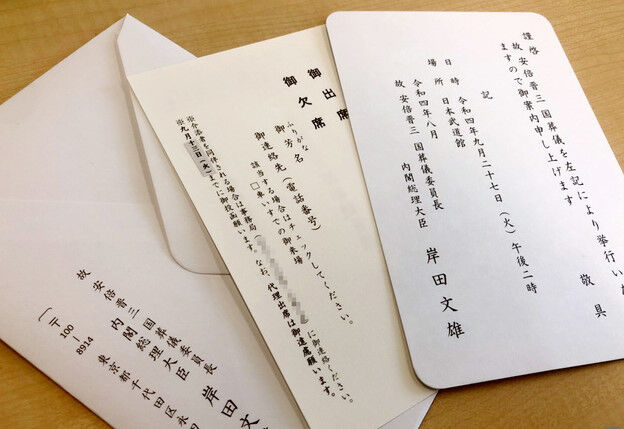 謹啓
故 安倍晋三 国葬儀を左記により挙行いた
ますので御案内申し上げます
敬具
記
日時 令和四年九月二十七日(火)午後二時
場所 日本武道館
令和四年八月
故 安倍晋三 国葬儀委員長
内閣総理大臣 岸田文雄
御出席
御欠席
ふりがな
御芳名
御連絡先(電話番号)
該当する場合はチェックしてください。
□車いすでの御来場
※介添者を同伴される場合は事務局( )に御連絡ください。
※九月十三日(火)までに御投函願います。なお、代理出席は御遠慮願います。
故 安倍晋三 国葬儀委員長
内閣総理大臣 岸田文
(〒100-8914
東京都千代田区永田